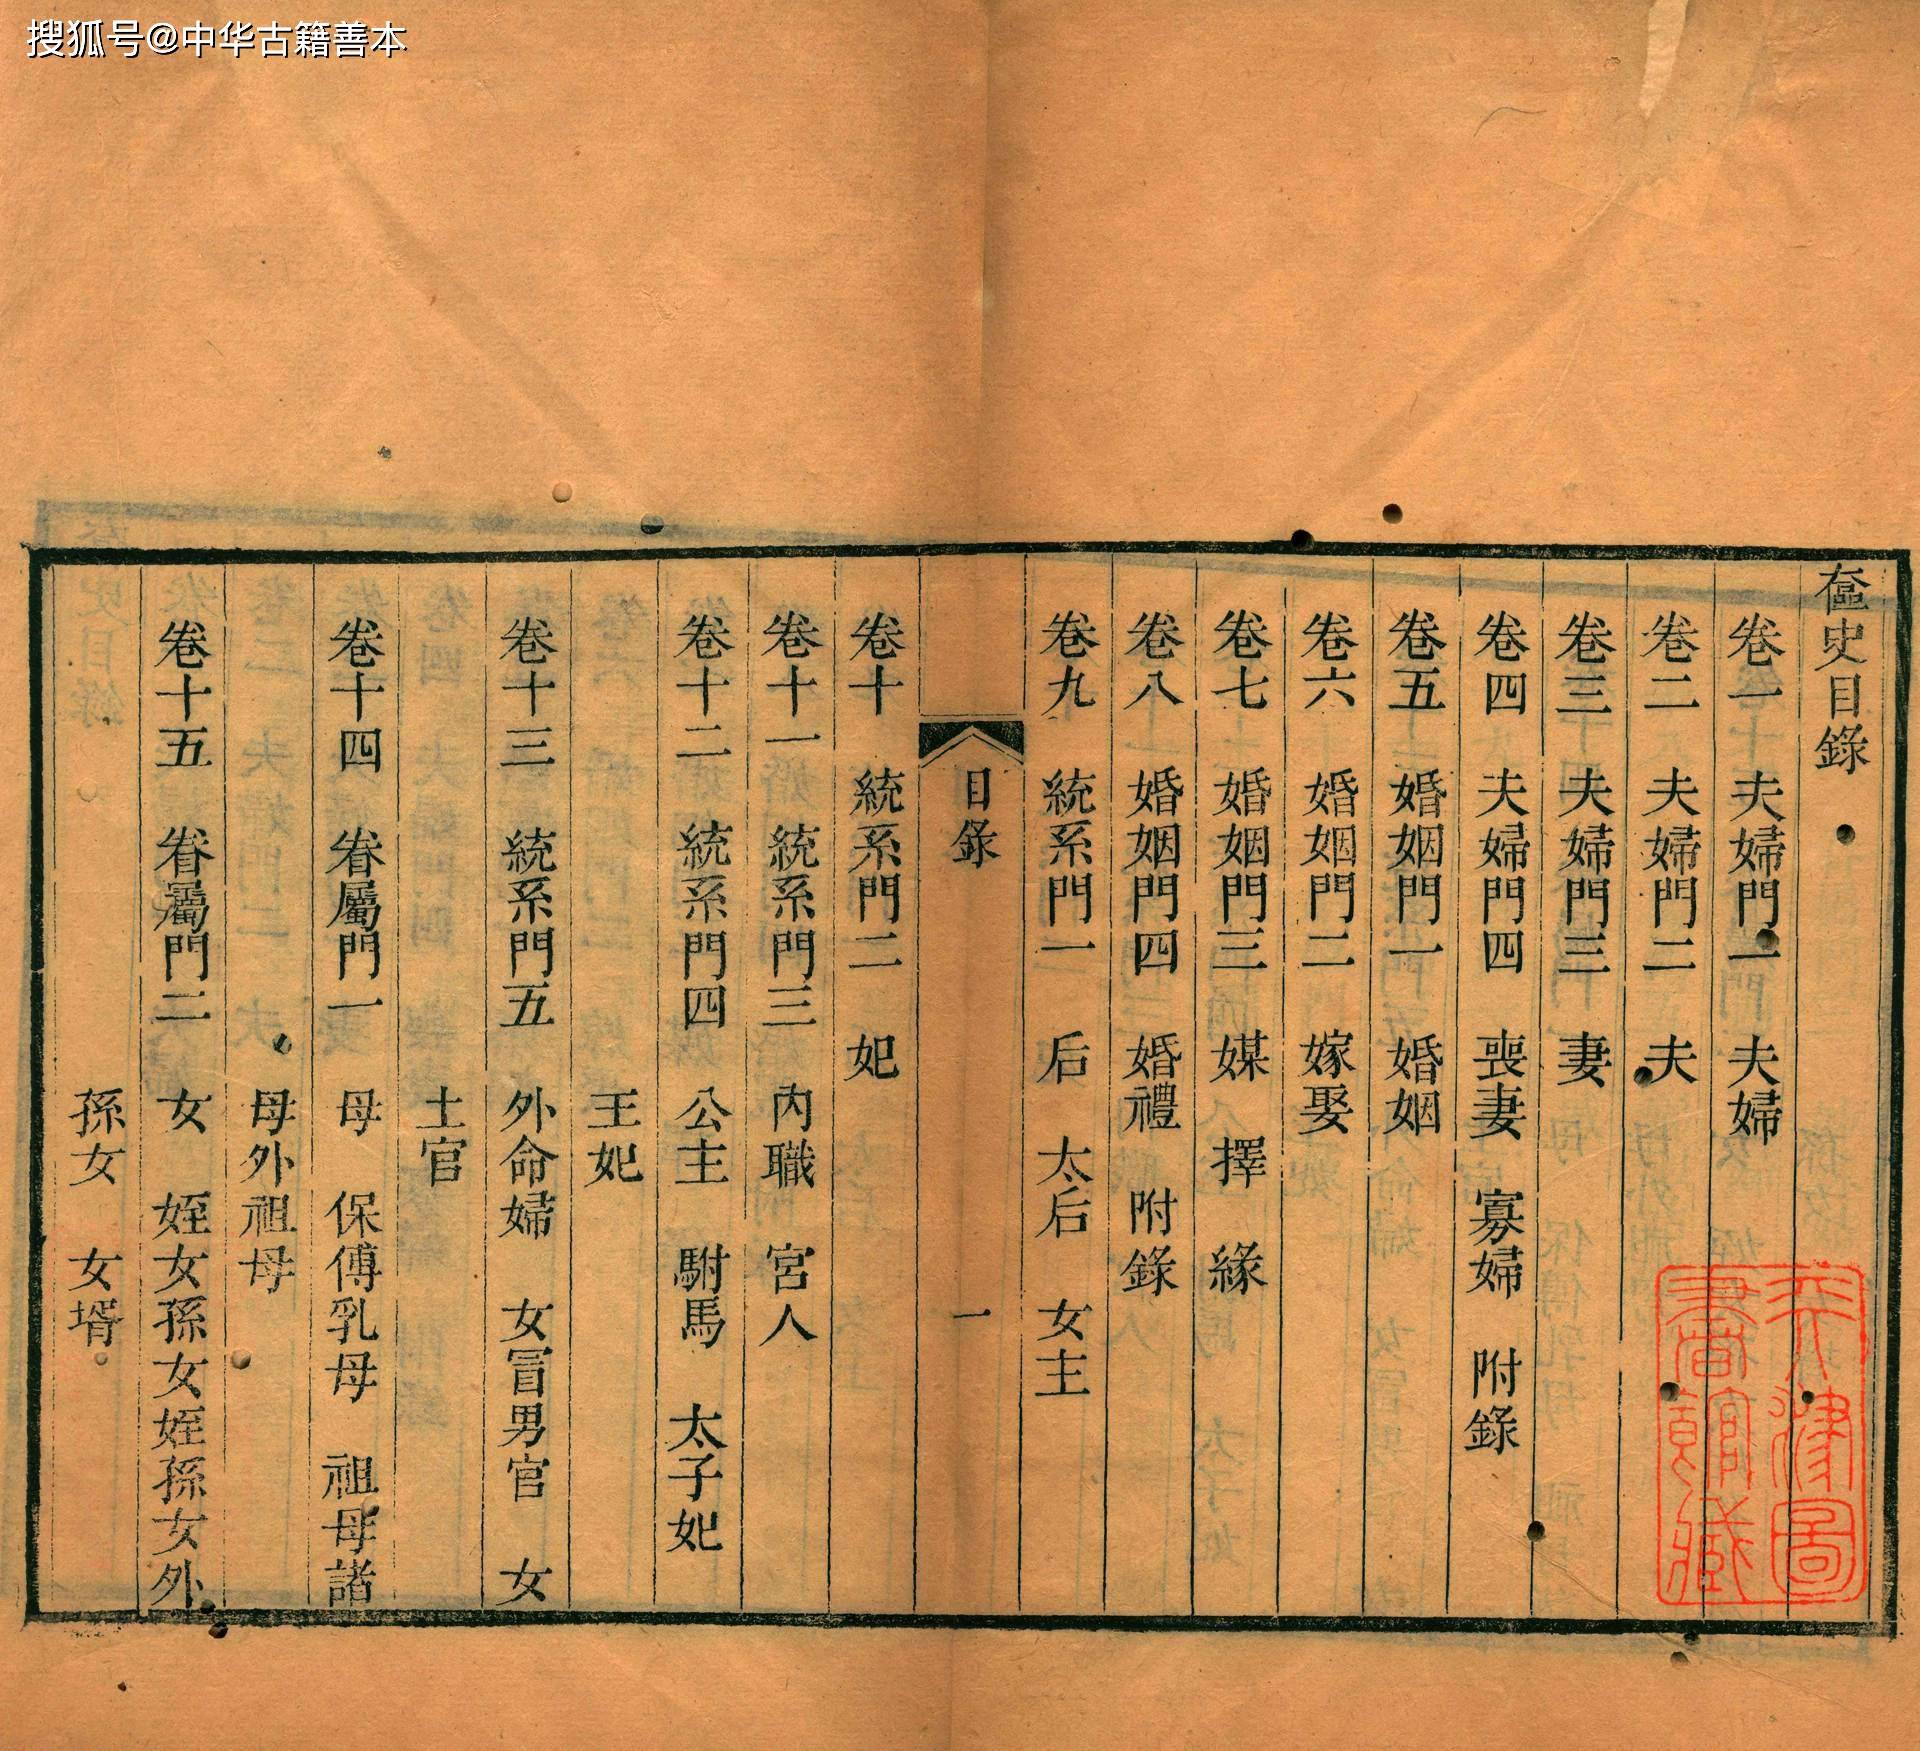 搜狐号@中华古籍善本
奩史目錄
卷一 夫婦門一 夫婦
卷二 夫婦門二 夫
卷三 夫婦門三 妻
卷四 夫婦門四 喪妻 寡婦 附錄
卷五 婚姻門一 婚姻
卷六 婚姻門二 嫁娶
卷七 婚姻門三 媒 擇 緣
卷八 婚姻門四 婚禮 附錄
卷九 統系門一 后 太后 女主
目錄 一
卷十 統系門二 妃
卷十一 統系門三 內職 宮人
卷十二 統系門四 公主 駙馬 太子妃
王妃
卷十三 統系門五 外命婦 女冒男官 女
土官
卷十四 眷屬門一 母 保傅乳母 祖母諸
母外祖母
卷十五 眷屬門二 女 姪女孫女姪孫女外
孫女 女壻
天津圖
書館賸藏